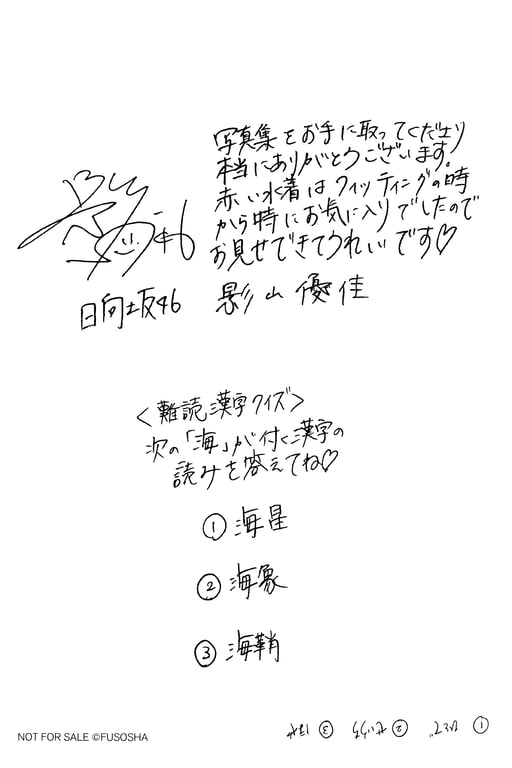 写真集をお手に取ってくださり
本当にありがとうございます。
赤い水着はフィッティングの時
から特にお気に入りでしたので
お見せできてうれしいです♡
日向坂46 影山優佳
<難読漢字クイズ>
次の「海」が付く漢字の
読みを答えてね♡
①海星
②海象
③海鞘
NOT FOR SALE ©FUSOSHA
①ひとで ②せいうち ③ほや